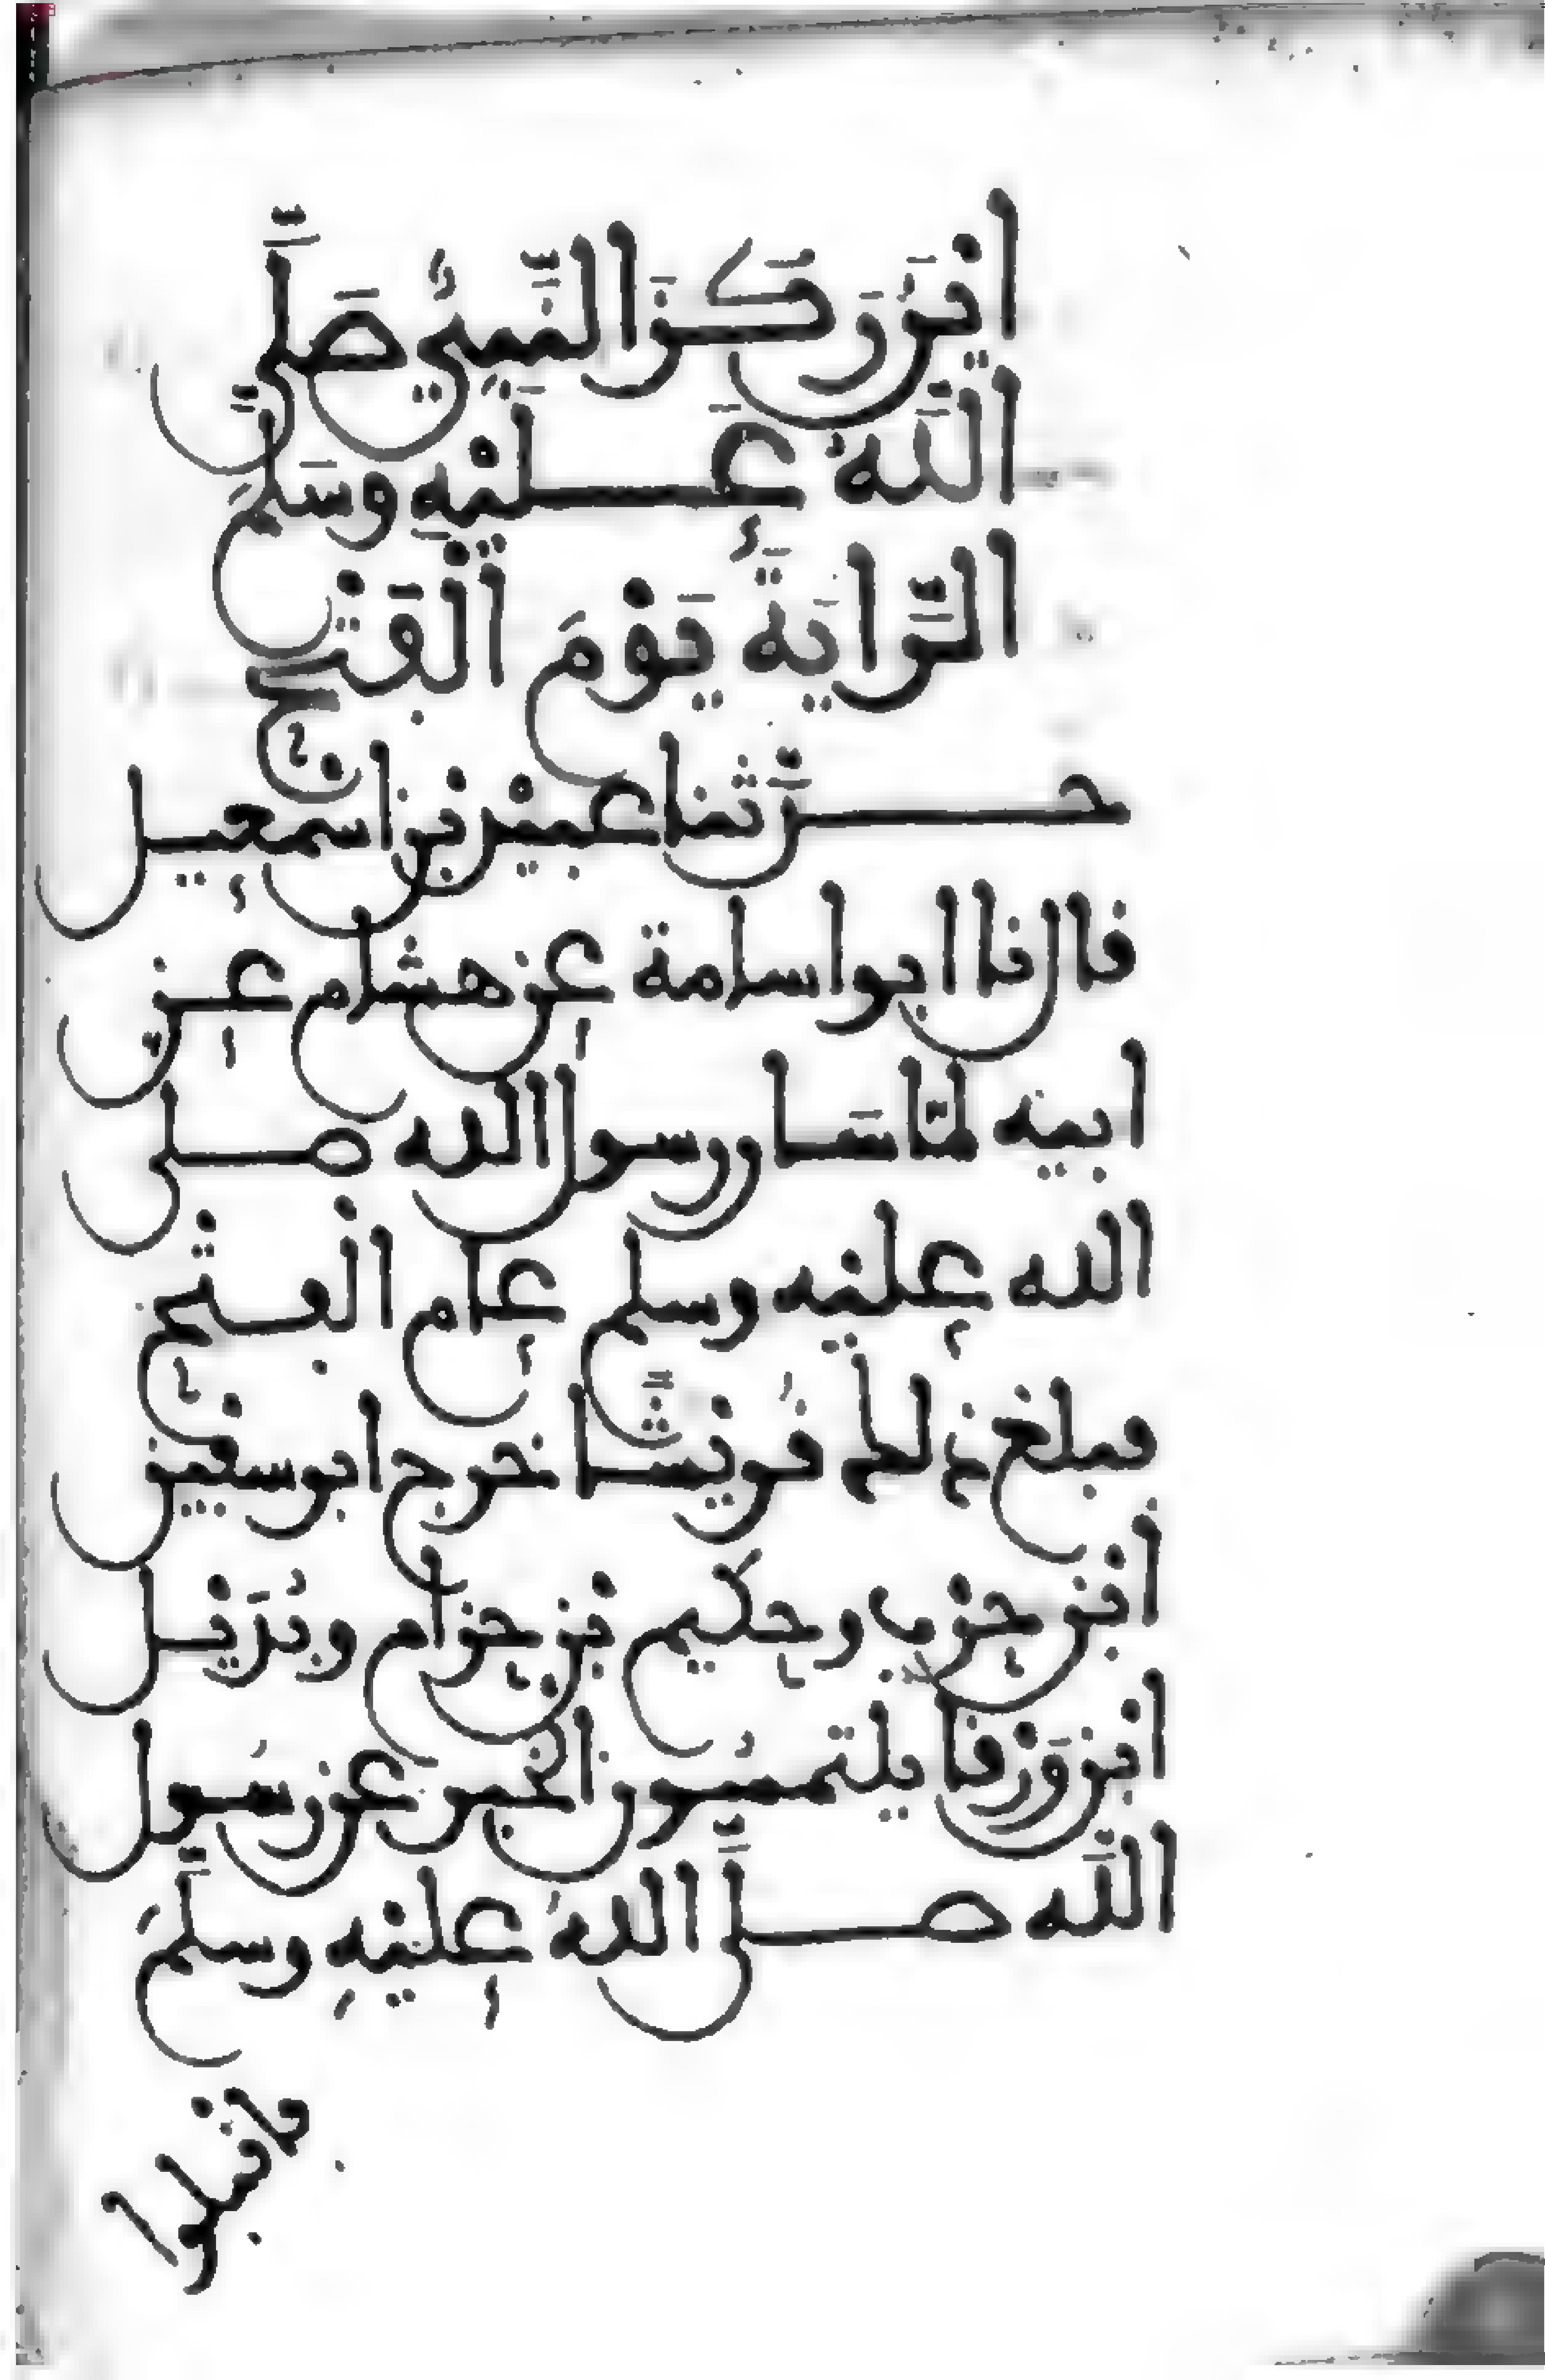 اَيْنَ رَكَزَ النَّبِيُّ صَلَّى
اللَّهُ عَلَيْهِ وَسَلَّمَ
الرَّايَةَ يَوْمَ الْفَتْحِ
حدَّثنا عبيْد بن اسمعيل
قال نا ابو اسامة عن هشام عن
ابيه لمّا سَار رسول الله صلى
الله عليه وسلم عام الفتح
فبلغ ذلك قُريْشًا خرج ابو سفين
ابن حرْب وحكيم بن حزام وبُدَيْل
ابن وَرْقا يلتمسُون الخبر عن رسُول
اللَّه صلَّى اللهُ عليْهِ وسلَّمَ
فاقبلوا